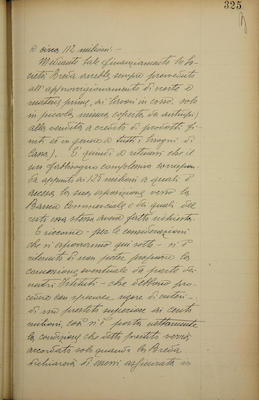 325
a circa 112 milioni. -
Mediante tale finanziamento la So-
cietà Breda avrebbe sempre provveduto
all'approvvigionamento di scorte e
materie prime, ai lavori in corso, solo
in piccola misura coperta da anticipi,
alla vendita a credito di prodotti fi-
niti ed in genere a tutti i bisogni di
Cassa). E quindi a ritenersi che il
suo fabbisogno complessivo corrispon-
da appunto ai 125 milioni ai quali
ascesa la sua esposizione verso la
Banca Commerciale e dei quali del
resto essa stessa aveva fatto richiesta.
E siccome - per le considerazioni
che si esporranno qui sotto - si è
ritenuto di non poter proporre la
concessione eventuale da parte dei
nostri Istituti - che debbono pro-
cedere con speciale rigore di criteri -
di un prestito superiore ai cento
milioni, così si è posta nettamente
la condizione che detto prestito verrà
accordato solo quando la Breda
dichiarerà di essersi assicurata in